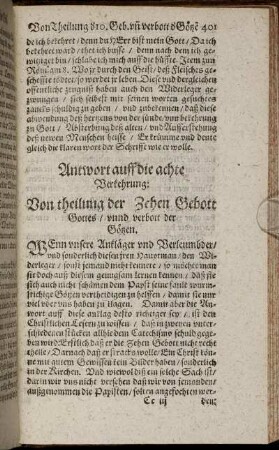 Von Theilung d 10. Geb. vñ verbott d Götzẽ 401
de ich bekehret / dann du HErr bist mein Gott / Da ich
bekehret ward / thet ich busse / denn nach dem ich ge-
witziget bin / schlahe ich mich auff die hüffte. Item zum
Römern 8. Wo jr durch den Geist / deß fleisches ge-
scheffte tödtet / so werdet jr leben. Diese vnd dergleichen
öffentliche zeugnussen haben auch den Widerleger ge-
zwungen / sich selbest mit seinen worten
schuldig zu geben / vnd zubekennen / daß diese
abwendung deß hertzens von der sünde / von bekehrung
zu Gott / Absterbung deß alten / vnd Aufferstehung
deß newen Menschen heisse / Er krümme vnd deute
gleich die klaren wort der Schrifft wie er wolle.
Antwort auff die achte
Verkehrung:
Von theilung der Zehen Gebott
Gottes / vnnd verbott der
Götzen.
WEnn vnsere Ankläger vnd Verleumbder /
vnd sonderlich diesen jren Hauptman / den Wi-
derleger / sonst jemand nicht kennete / so möchte man
sie doch auß diesem gnugsam lernen kennen / daß sie
sich auch nicht schämen dem Papst seine faule wurm-
stichige Götzen vertheidigen zu helffen / damit sie nur
viel vber vns haben zu klagen. Damit aber die Ant-
wort auff diese anklag desto richtiger sey / ist den
Christlichen Lesern zu wissen / daß in zweyen vnter-
schiedenen stücken allhie dem Catechismo schuld gege-
ben wird / Erstlich daß er die Zehen Gebott nicht recht
theile / Darnach daß er stracks wolle / Ein Christ kön-
ne mit gutem Gewissen kein Bilder haben / sonderlich
in der Kirchen. Vnd wiewol diß ein solche Sach ist /
darin wir vns nicht versehen daß wir von jemanden /
außgenommen die Papisten / solten angefochten wer-
Cc iij den: